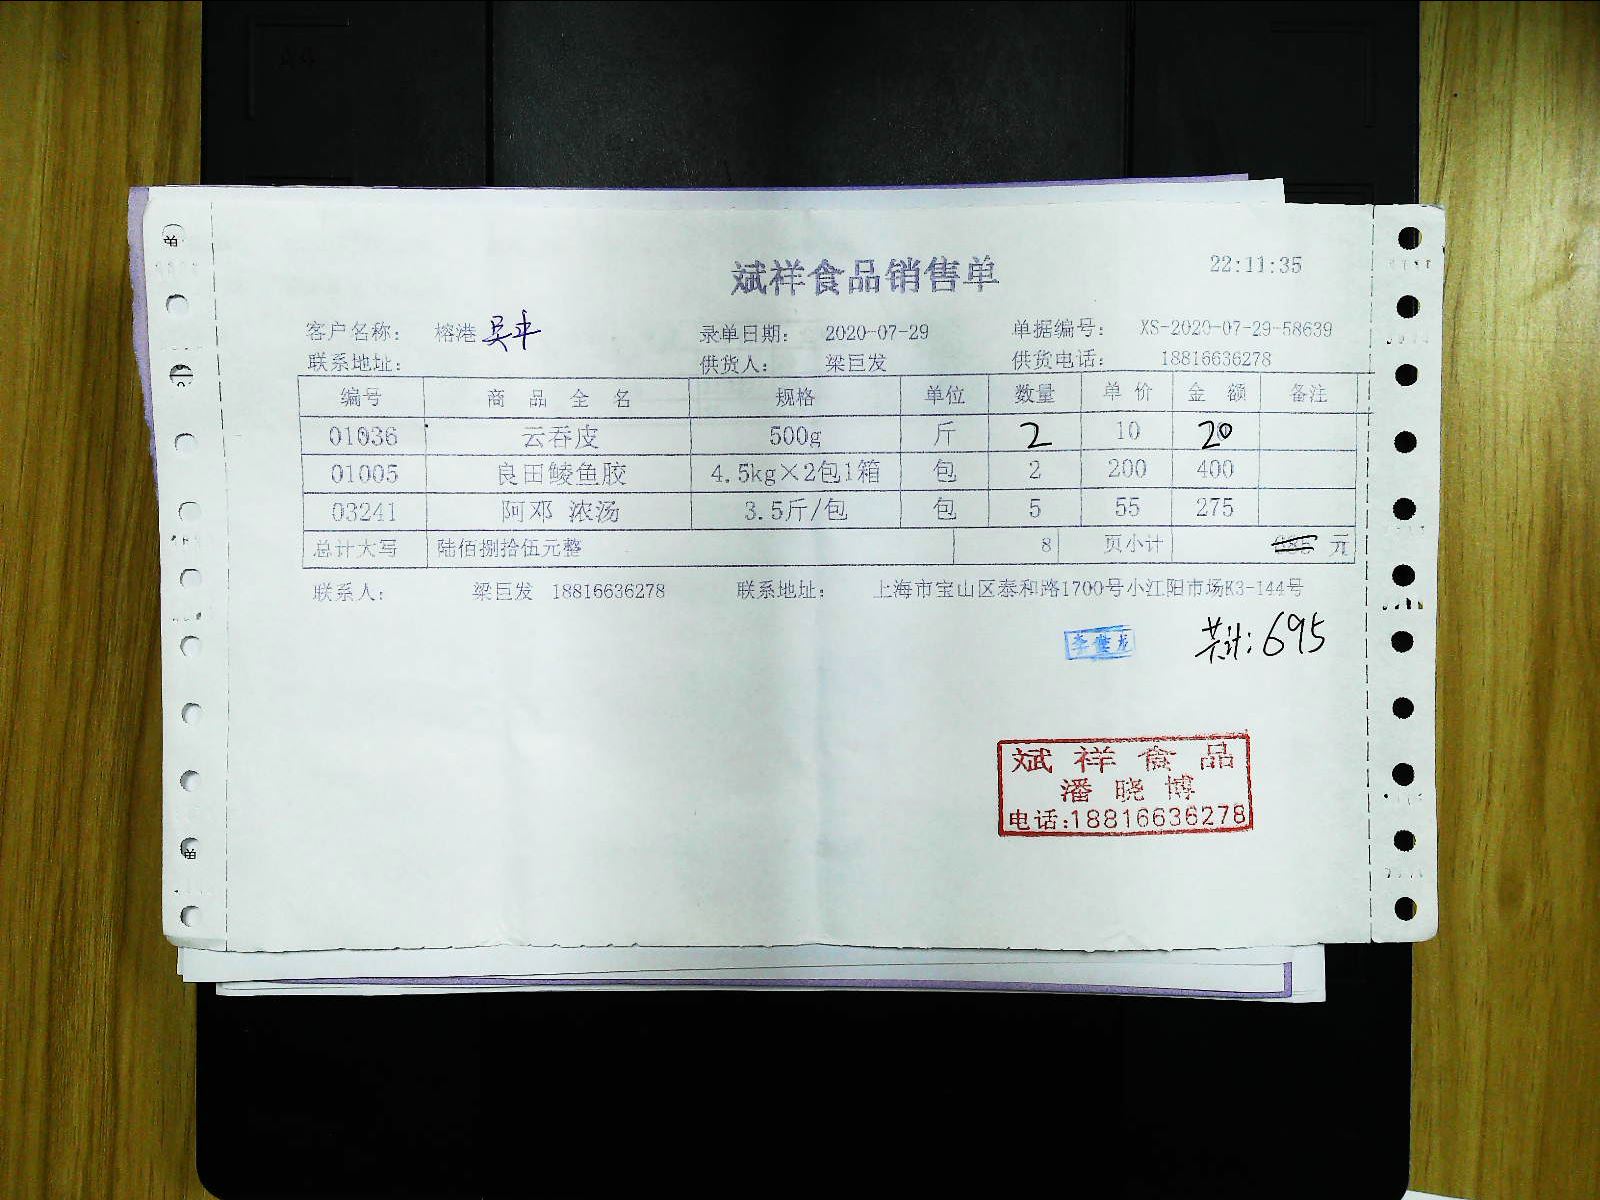 斌祥食品销售单 22:11:35
客户名称： 榕港 吴平 录单日期： 2020-07-29 单据编号： XS-2020-07-29-58639
联系地址： 供货人： 梁巨发 供货电话： 18816636278
编号 商品全名 规格 单位 数量 单价 金额 备注
01036 云吞皮 500g 斤 2 10 20
01005 良田鲮鱼胶 4.5kg×2包1箱 包 2 200 400
03241 阿邓 浓汤 3.5斤/包 包 5 55 275
总计大写 陆佰捌拾伍元整 8 页小计 元
联系人： 梁巨发 18816636278 联系地址： 上海市宝山区泰和路1700号小江阳市场K3-144号
共计:695
斌祥食品
潘晓博
电话:18816636278